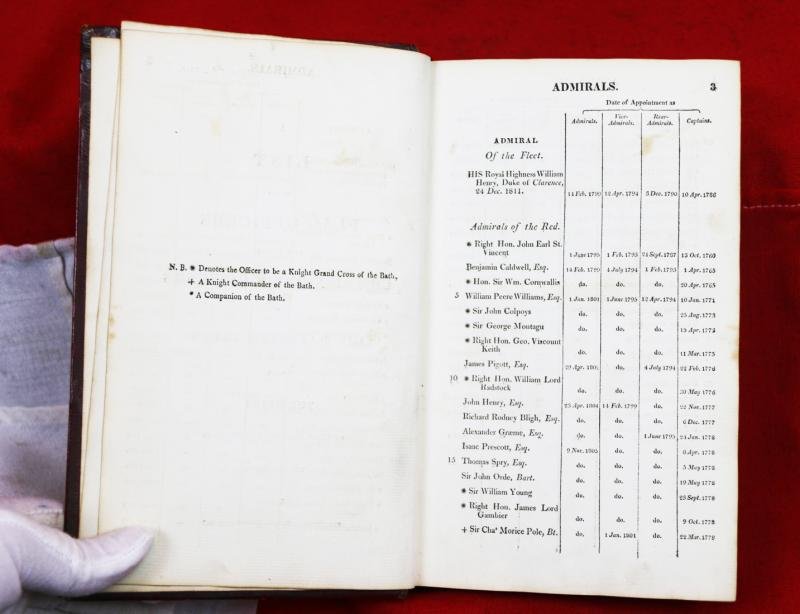 N. B. * Denotes the Officer to be a Knight Grand Cross of the Bath,
+ A Knight Commander of the Bath.
* A Companion of the Bath.
ADMIRALS. 3
Date of Appointment as
Admirals. Vice-Admirals. Rear-Admirals. Captains.
ADMIRAL
Of the Fleet.
HIS Royal Highness William
Henry, Duke of Clarence,
24 Dec. 1811. 14 Feb. 1799 12 Apr. 1794 3 Dec. 1790 10 Apr. 1786
Admirals of the Red.
* Right Hon. John Earl St.
Vincent 1 June 1795 1 Feb. 1793 24 Sept. 1787 13 Oct. 1760
Benjamin Caldwell, Esq. 14 Feb. 1799 4 July 1794 1 Feb. 1793 1 Apr. 1765
* Hon. Sir Wm. Cornwallis do. do. do. 20 Apr. 1765
5 William Peere Williams, Esq. 1 Jan. 1801 1 June 1795 12 Apr. 1794 10 Jan. 1771
* Sir John Colpoys do. do. do. 25 Aug. 1773
* Sir George Montagu do. do. do. 15 Apr. 1773
* Right Hon. Geo. Viscount
Keith do. do. do. 11 Mar. 1775
James Pigott, Esq. 29 Apr. do. 4 July 1794 22 Feb. 1776
10 * Right Hon. William Lord
Radstock do. do. do. 30 May 1776
John Henry, Esq. 23 Apr. 1804 14 Feb. 1799 do. 22 Nov. 1777
Richard Rodney Bligh, Esq. do. do. do. 6 Dec. 1777
Alexander Græme, Esq. do. do. 1 June 1795 21 Jan. 1778
Isaac Prescott, Esq. 9 Nov. 1805 do. do. 6 Apr. 1778
15 Thomas Spry, Esq. do. do. do. 5 May 1778
Sir John Orde, Bart. do. do. do. 19 May 1778
* Sir William Young do. do. do. 23 Sept. 1778
* Right Hon. James Lord
Gambier do. do. do. 9 Oct. 1778
+ Sir Chaˢ Morice Pole, Bt. do. 1 Jan. 1801 do. 22 Mar. 1779